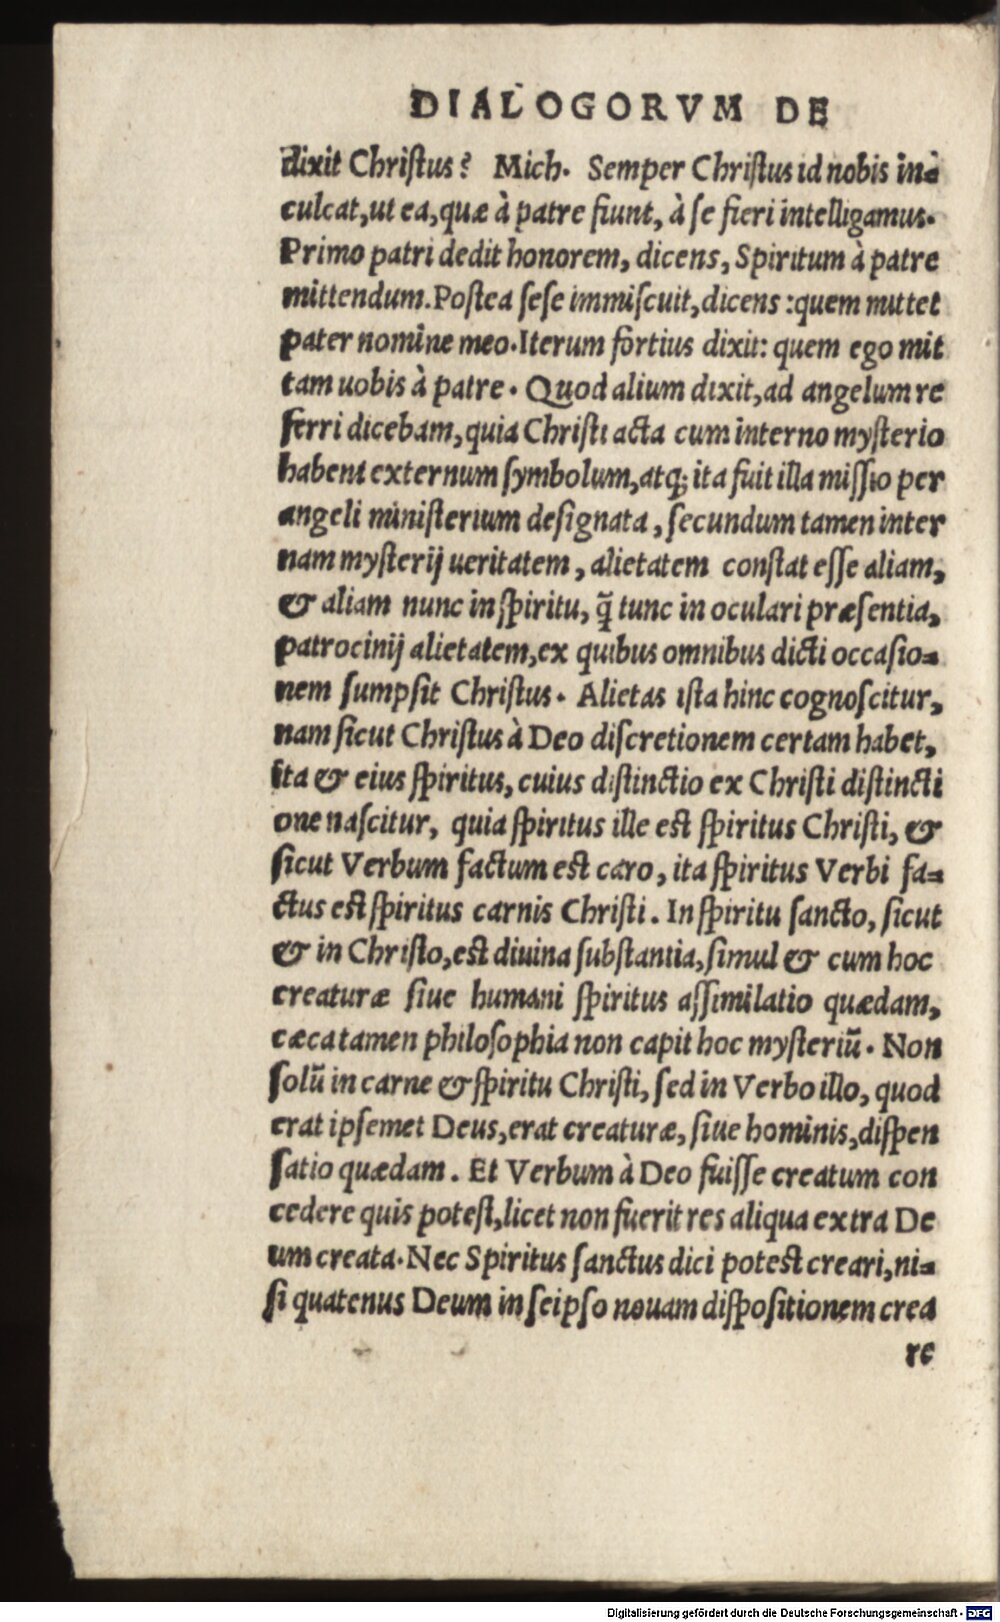 DIALOGORVM DE
dixit Chriſtus? Mich. Semper Chriſtus id nobis in-
culcat, ut ea, quæ à patre fiunt, à ſe fieri intelligamus.
Primo patri dedit honorem, dicens, Spiritum à patre
mittendum. Poſtea ſeſe immiſcuit, dicens: quem mittet
pater nomine meo. Iterum fortius dixit: quem ego mit
tam uobis à patre. Quod alium dixit, ad angelum re
ferri dicebam, quia Chriſti acta cum interno myſterio
habent externum ſymbolum, atq; ita fuit illa miſſio per
angeli miniſterium deſignata, ſecundum tamen inter
nam myſterij ueritatem, alietatem conſtat eſſe aliam,
& aliam nunc in ſpiritu, q̃ tunc in oculari præſentia,
patrocinij alietatem, ex quibus omnibus dicti occaſio-
nem ſumpſit Chriſtus. Alietas iſta hinc cognoſcitur,
nam ſicut Chriſtus à Deo diſcretionem certam habet,
ita & eius ſpiritus, cuius diſtinctio ex Chriſti diſtincti
one naſcitur, quia ſpiritus ille eſt ſpiritus Chriſti, &
ſicut Verbum factum eſt caro, ita ſpiritus Verbi fa-
ctus eſt ſpiritus carnis Chriſti. In ſpiritu ſancto, ſicut
& in Chriſto, eſt diuina ſubſtantia, ſimul & cum hoc
creaturæ ſiue humani ſpiritus aſſimilatio quædam,
cæca tamen philoſophia non capit hoc myſteriũ. Non
ſolũ in carne & ſpiritu Chriſti, ſed in Verbo illo, quod
erat ipſemet Deus, erat creaturæ, ſiue hominis, diſpen
ſatio quædam. Et Verbum à Deo fuiſſe creatum con
cedere quis poteſt, licet non fuerit res aliqua extra De
um creata. Nec Spiritus ſanctus dici poteſt creari, ni-
ſi quatenus Deum in ſeipſo nouam diſpoſitionem crea
re
Digitalisierung gefördert durch die Deutsche Forschungsgemeinschaft - DFG